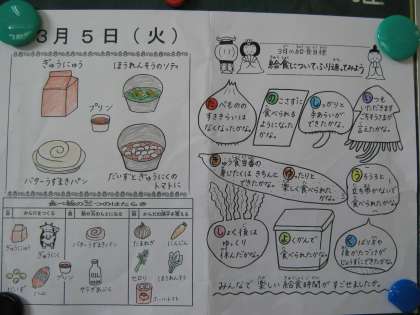 3月5日(火)
ぎゅうにゅう
ほうれんそうのソテー
プリン
バターうずまきパン
だいずとぎゅうにくの
トマトに
食べ物の三つのはたらき
赤
からだをつくる
黄
緑
からだの調子を整える
ぎゅうにゅう
ぎゅうにく
だいず
ハム
プリン
バターうずまきパン
サラダあぶら
たまねぎ
にんじん
セロリー
ほうれんそう
3月の給食目標
給食についてふり返ってみよう
たべものの
すききらいは
なくなったかな。
のこさずに
食べられる
ようになった
かな。
しっかりと
手あらいが
できたかな。
いつも
いただきます
ごちそうさまが
言えたかな。
きゅう食当番の
身じたくは きちんと
できたかな。
ゆったりと
楽しく食べられた
かな。
うろうろと
立ち歩かないで
食べられたかな。
しょく後は
ゆっくり
休んだかな。
よくかんで
食べられたかな。
くばり方や
後かたづけが
じょうずにできたかな。
みんなで 楽しい 給食時間が すごせましたか。